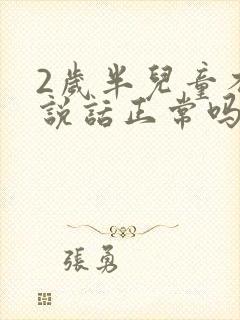 2歲半兒童不
說話正常吗
張勇